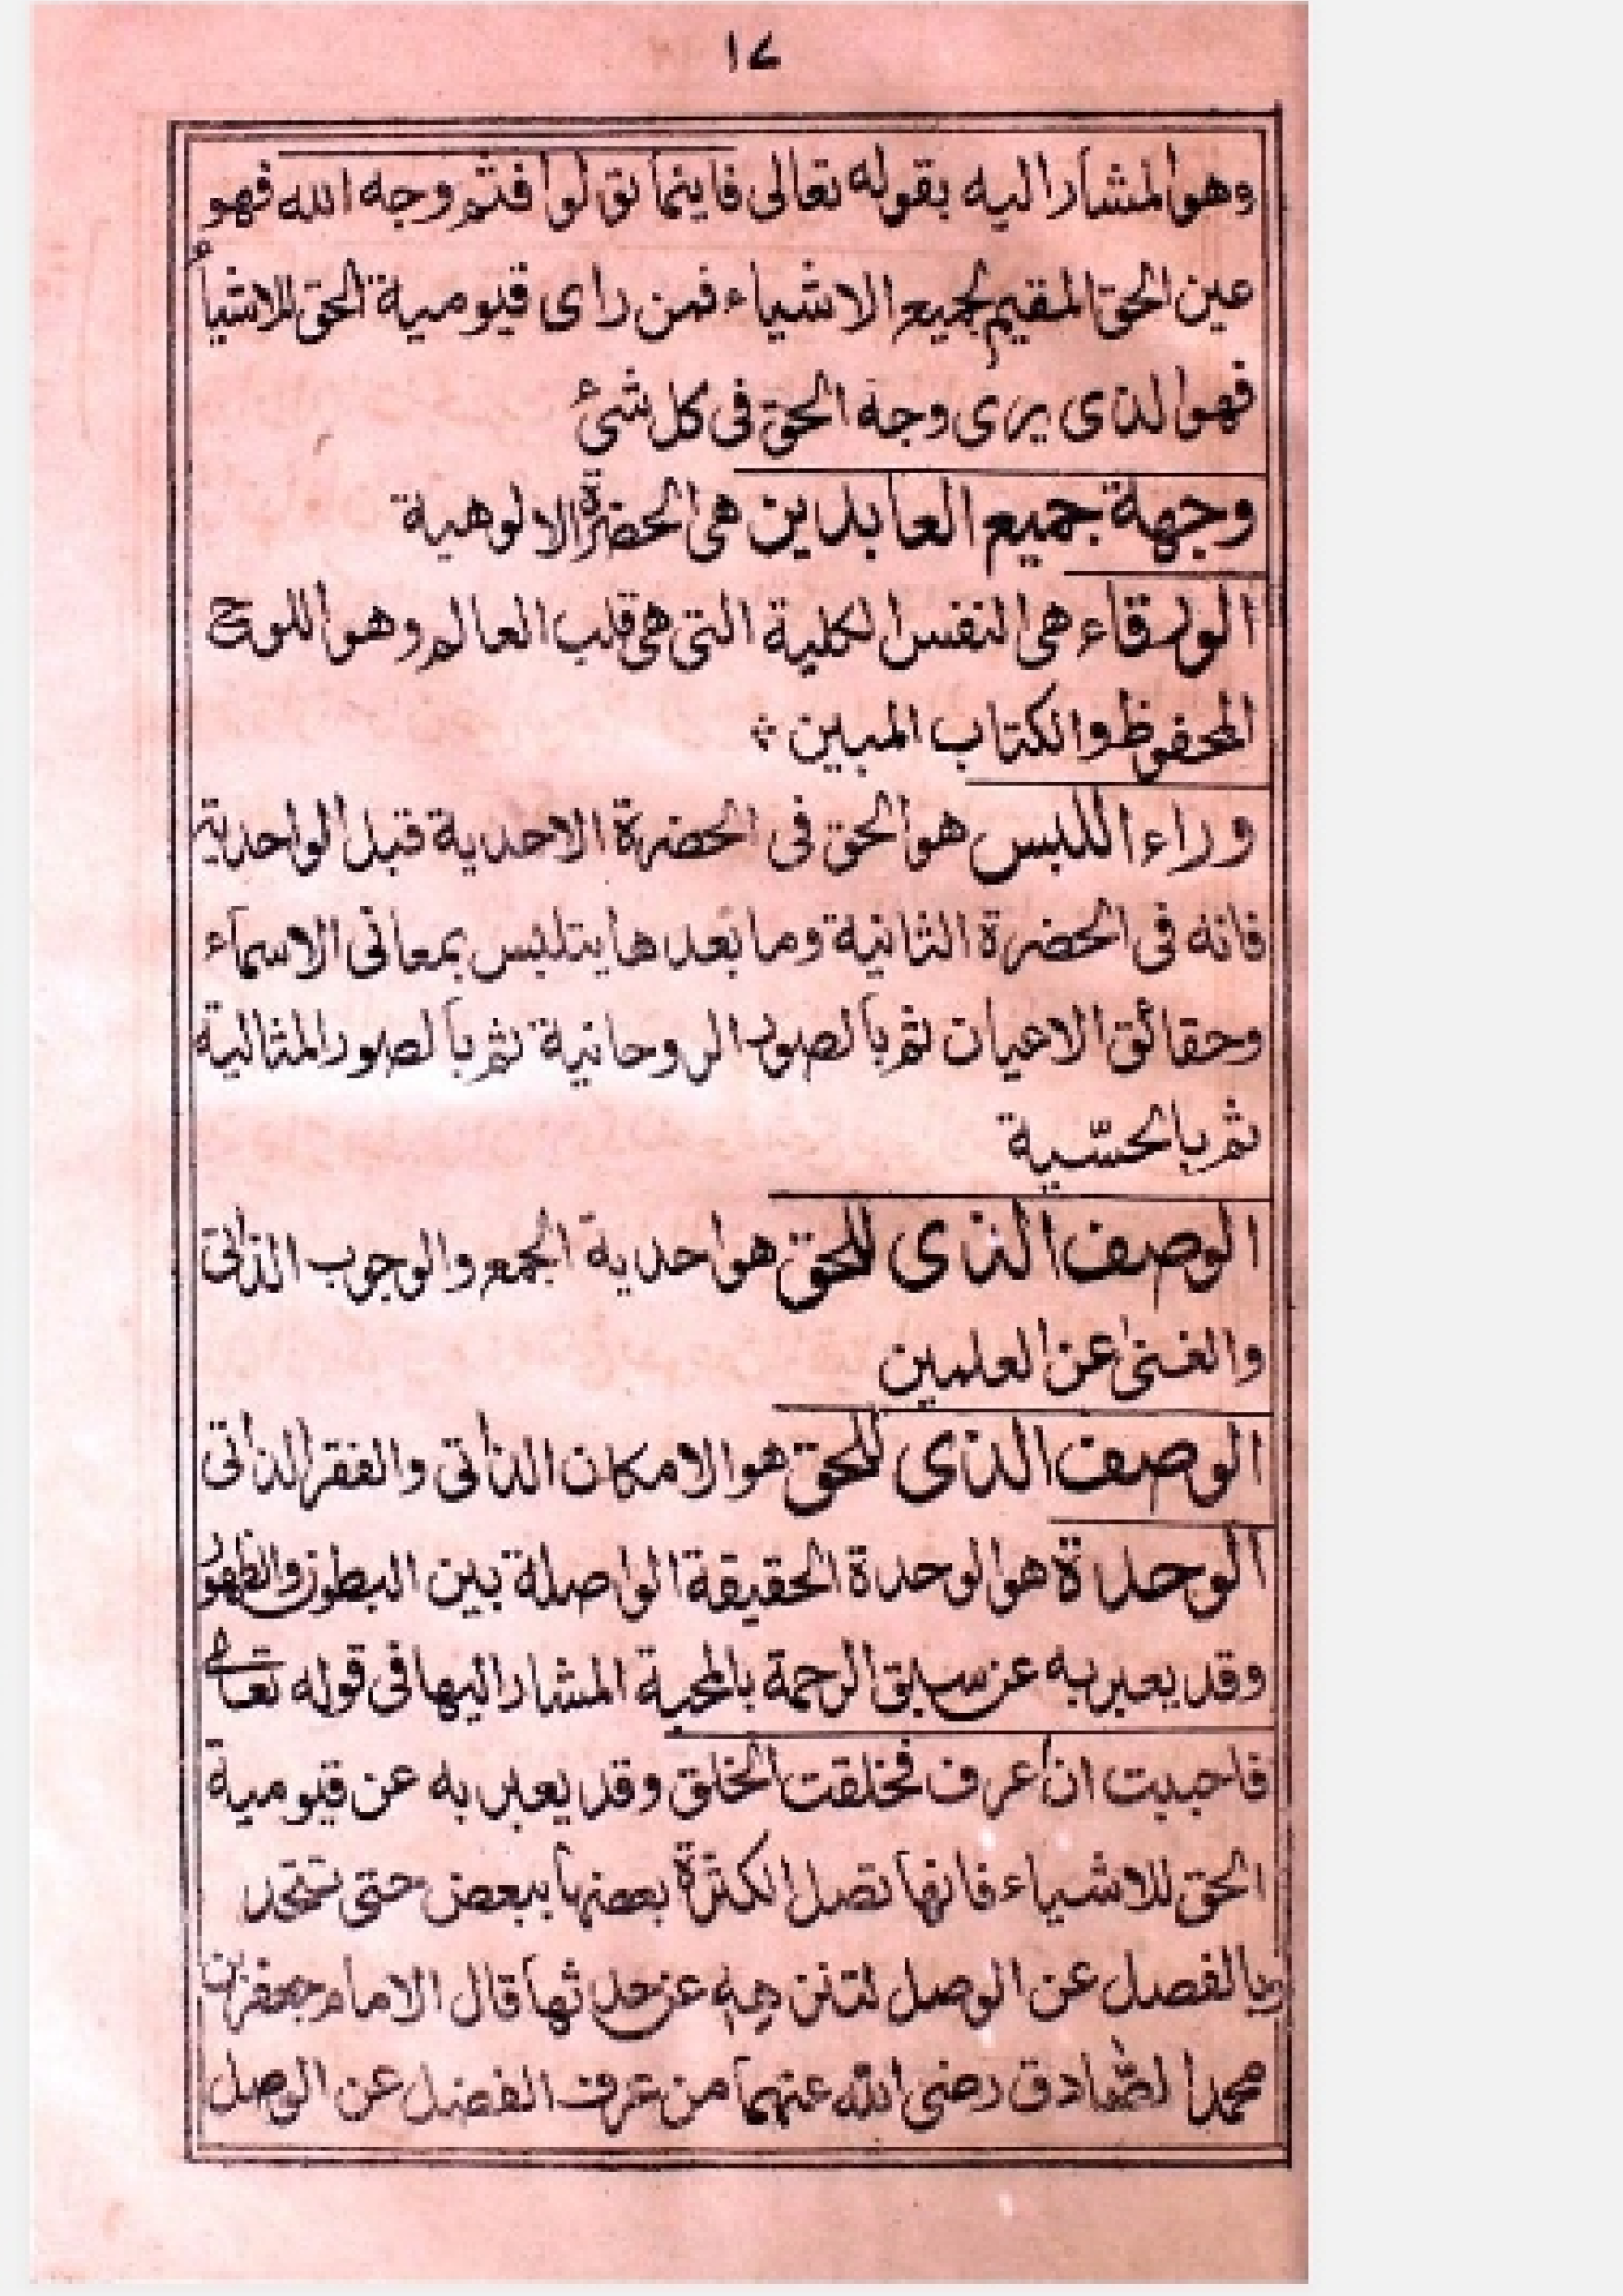 ١٧
وهو المشار اليه بقوله تعالى فاينما تولوا فثم وجه الله فهو
عين الحق المقيم لجميع الاشياء فمن راى قيومية الحق للاشياء
فهو الذى يرى وجه الحق فى كل شئ
وجهة جميع العابدين هى الحضرة الالوهية
الورقاء هى النفس الكلية التى هى قلب العالم وهو اللوح
المحفوظ والكتاب المبين
وراء اللبس هو الحق فى الحضرة الاحدية قبل الواحدية
فانه فى الحضرة الثانية وما بعدها يتلبس بمعانى الاسماء
وحقائق الاعيان ثم بالصور الروحانية ثم بالصور المثالية
ثم بالحسّية
الوصف الذى للحق هو احدية الجمع والوجوب الذاتى
والغنى عن العلمين
الوصف الذى للحق هو الامكان الذاتى والفقر الذاتى
الوحدة هو الوحدة الحقيقة الواصلة بين البطون والظهور
وقد يعبر به عن سبق الرحمة بالمحبة المشار اليها فى قوله تعالى
فاحببت ان اعرف فخلقت الخلق وقد يعبر به عن قيومية
الحق للاشياء فانها تصل الكثرة بعضها ببعض حتى تتحد
وبالفصل عن الوصل لتنزهه عن حدثها قال الامام جعفر بن
محمد الصّادق رضى الله عنهما من عرف الفضل عن الوصل